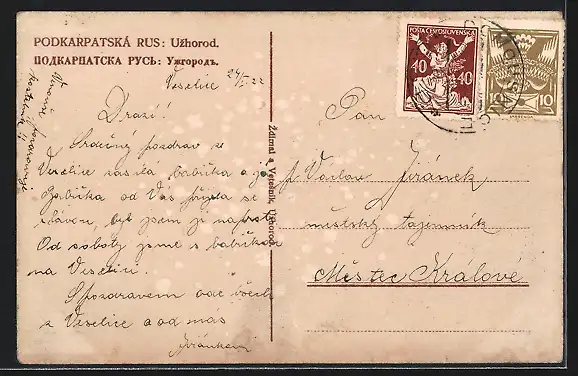 PODKARPATSKÁ RUS: Užhorod.
ПОДКАРПАТСКА РУСЬ: Ужгородъ.
Veselice 24/I. 22
Drazí!
Srdečný pozdrav z
Veselice zasílá babička a já
Babička od Vás přijela se
zdráva, byl jsem jí naproti
Od soboty jsme s babičkou
na Veselici.
S pozdravem vás všech
z Veselice a od nás
Jiránkovi
Ždímal a Vetešník, Užhorod.
POŠTA ČESKOSLOVENSKÁ
40 40
10 10
Pan
Václav Jiránek
městský tajemník
Městec Králové